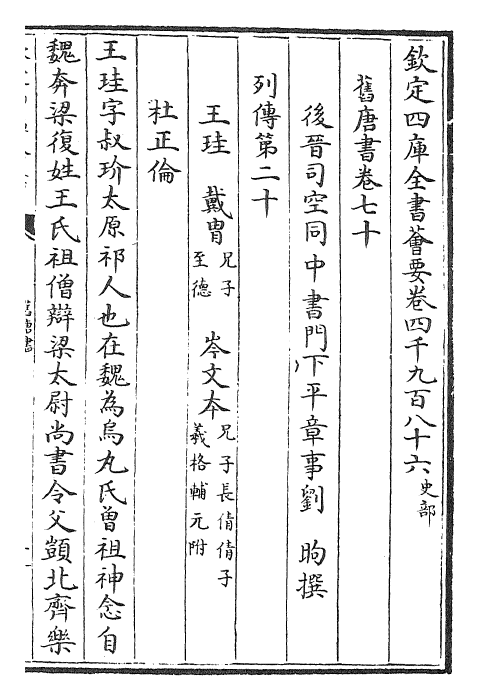 欽定四庫全書薈要卷四千九百八十六史部
舊唐書卷七十
後晉司空同中書門下平章事劉昫撰
列傳第二十
王珪 戴胄兄子至德 岑文本兄子長倩倩子羲格輔元附
杜正倫
王珪字叔玠太原祁人也在魏為烏丸氏曾祖神念自
魏奔梁復姓王氏祖僧辯梁太尉尚書令父顗北齊樂
舊唐書